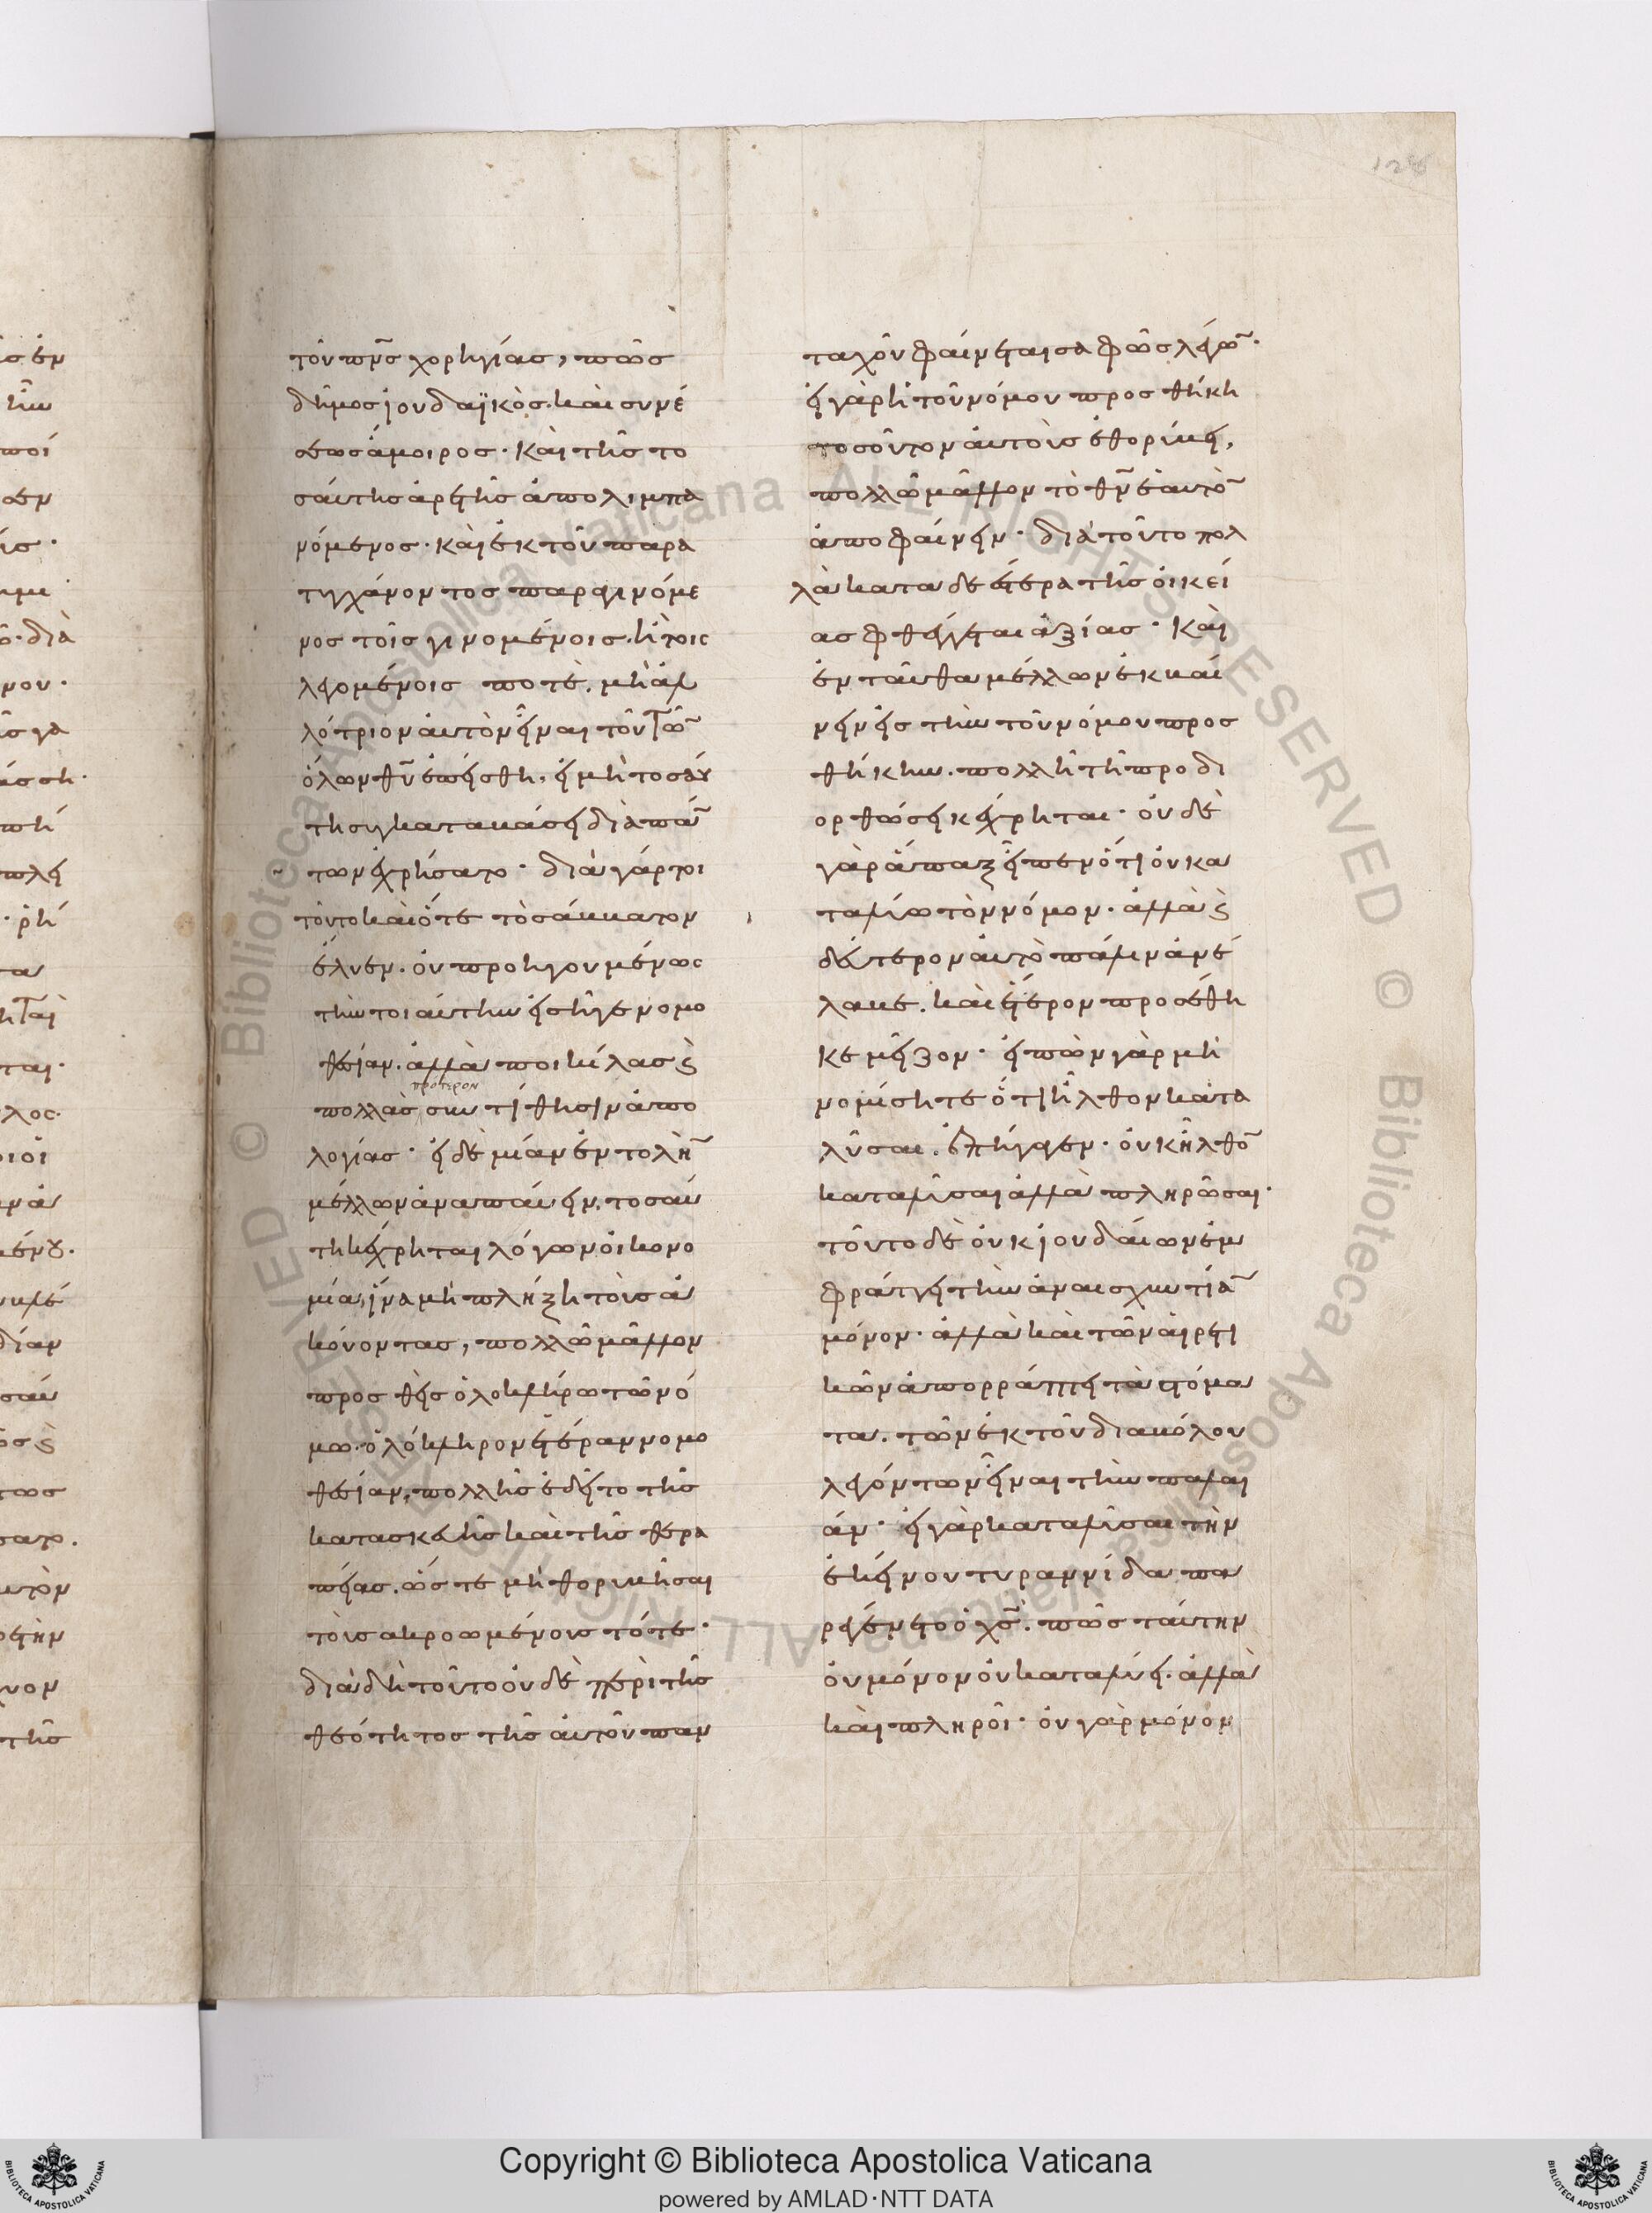 τοῦ πν̅ς χορηγίας, πῶς
δῆμος ἰουδαϊκὸς. καὶ συνέ
σεως ἄμοιρος· καὶ τῆς το
σαύτης ἀρετῆς ἀπολιμπα
νόμενος· καὶ ἐκ τοῦ παρα
τυγχάνοντος παραγινόμε
νος τοῖς γινομένοις. ἢ τοῖς
λεγομένοις ποτὲ. μὴ ἀλ
λότριον αὐτὸν εἶναι τοῦ τῶ̅
ὅλων θυ̅ ἐπείσθη, εἰ μὴ τοσαύ
τη συγκαταβάσει διὰ πά̅
των ἐχρήσατο· διὰ γάρ τοι
τοῦτο καὶ ὅτε τὸ σάββατον
ἔλυεν. οὐ προηγουμένως
τὴν τοιαύτην εἰσῆγε νομο
θεσίαν. ἀλλὰ ποικίλας ϛ̀
πρότερον
πολλὰς συντίθησιν ἀπο
λογίας· εἰ δὲ μίαν ἐντολὴ̅
μέλλων ἀναπαύειν, τοσαύ
τη κέχρηται λόγων οἰκονο
μία, ἵνα μὴ πλήξη τοὺς ἀ
κούοντας, πολλῶ μᾶλλον
προσθεὶς ὁλοκλήρω τῶ νό
μω. ὁλόκληρον ἑτέραν νομο
θεσίαν, πολλῆς ἐδεῖτο τῆς
κατασκευῆς καὶ τῆς θερα
πείας. ὥστε μὴ θορυβῆσαι
τοὺς ἀκροωμένους τότε·
διὰ δὴ τοῦτο οὐδὲ περὶ τῆς
θεότητος τῆς αὐτοῦ παν
ταχοῦ φαίνεται σαφῶς λέγω̅·
εἰ γὰρ ἡ τοῦ νόμου προσθήκη
τοσοῦτον αὐτοὺς ἐθορύβει,
πολλῶ μᾶλλον τὸ θν̅ ἑαυτὸ̅
ἀποφαίνειν· διὰ τοῦτο πολ
λὰ καταδεέστερα τῆς οἰκεί
ας φθέγγεται ἀξίας· καὶ
ἐνταῦθα μέλλων ἐκβαί
νειν εἰς τὴν τοῦ νόμου προσ
θήκην. πολλῆ τῆ προδι
ορθώσει κέχρηται· οὐδὲ
γὰρ ἅπαξ εἶπεν ὅτι οὐ κα
ταλύω τὸν νόμον. ἀλλὰ ϛ̀
δεύτερον αὐτὸ πάλιν ἀνέ
λαβε. καὶ ἕτερον προσέθη
κε μεῖζον· εἰπὼν γὰρ μὴ
νομίσητε ὅτι ἦλθον κατα
λῦσαι. ἐπήγαγεν· οὐκ ἦλθο̅
καταλῦσαι ἀλλὰ πληρῶσαι·
τοῦτο δὲ οὐκ ἰουδαίων ἐμ
φράττει τὴν ἀναισχυντία̅
μόνον· ἀλλὰ καὶ τῶν αἱρετι
κῶν ἀπορράπτει τὰ στόμα
τα. τῶν ἐκ τοῦ διαβόλου
λεγόντων εἶναι τὴν παλαι
άν· εἰ γὰρ καταλῦσαι τὴν
ἐκείνου τυραννίδα πα
ρεγένετο ὁ χς̅. πῶς ταύτην
οὐ μόνον οὐ καταλύει. ἀλλὰ
καὶ πληροῖ· οὐ γὰρ μόνον
Copyright © Biblioteca Apostolica Vaticana
powered by AMLAD·NTT DATA